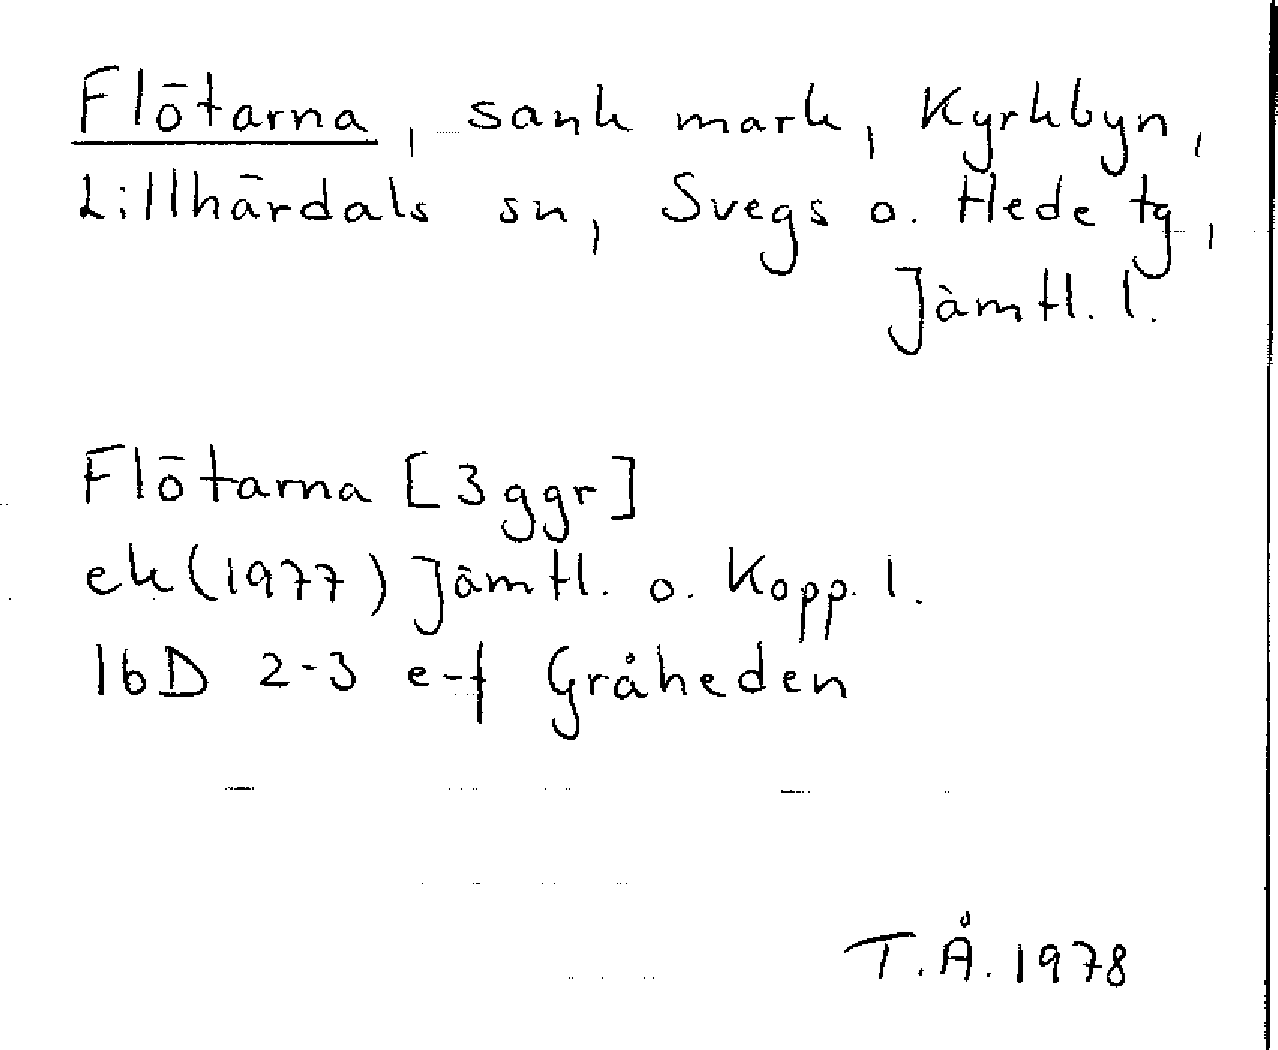 Flötarna, sank mark, Kyrkbyn,
Lillhärdals sn, Svegs o. Hede tg,
Jämtl. l.
Flötarna [3 ggr]
ek (1977) Jämtl. o. Kopp. l.
16D 2-3 e-f Gråheden
T.Å. 1978